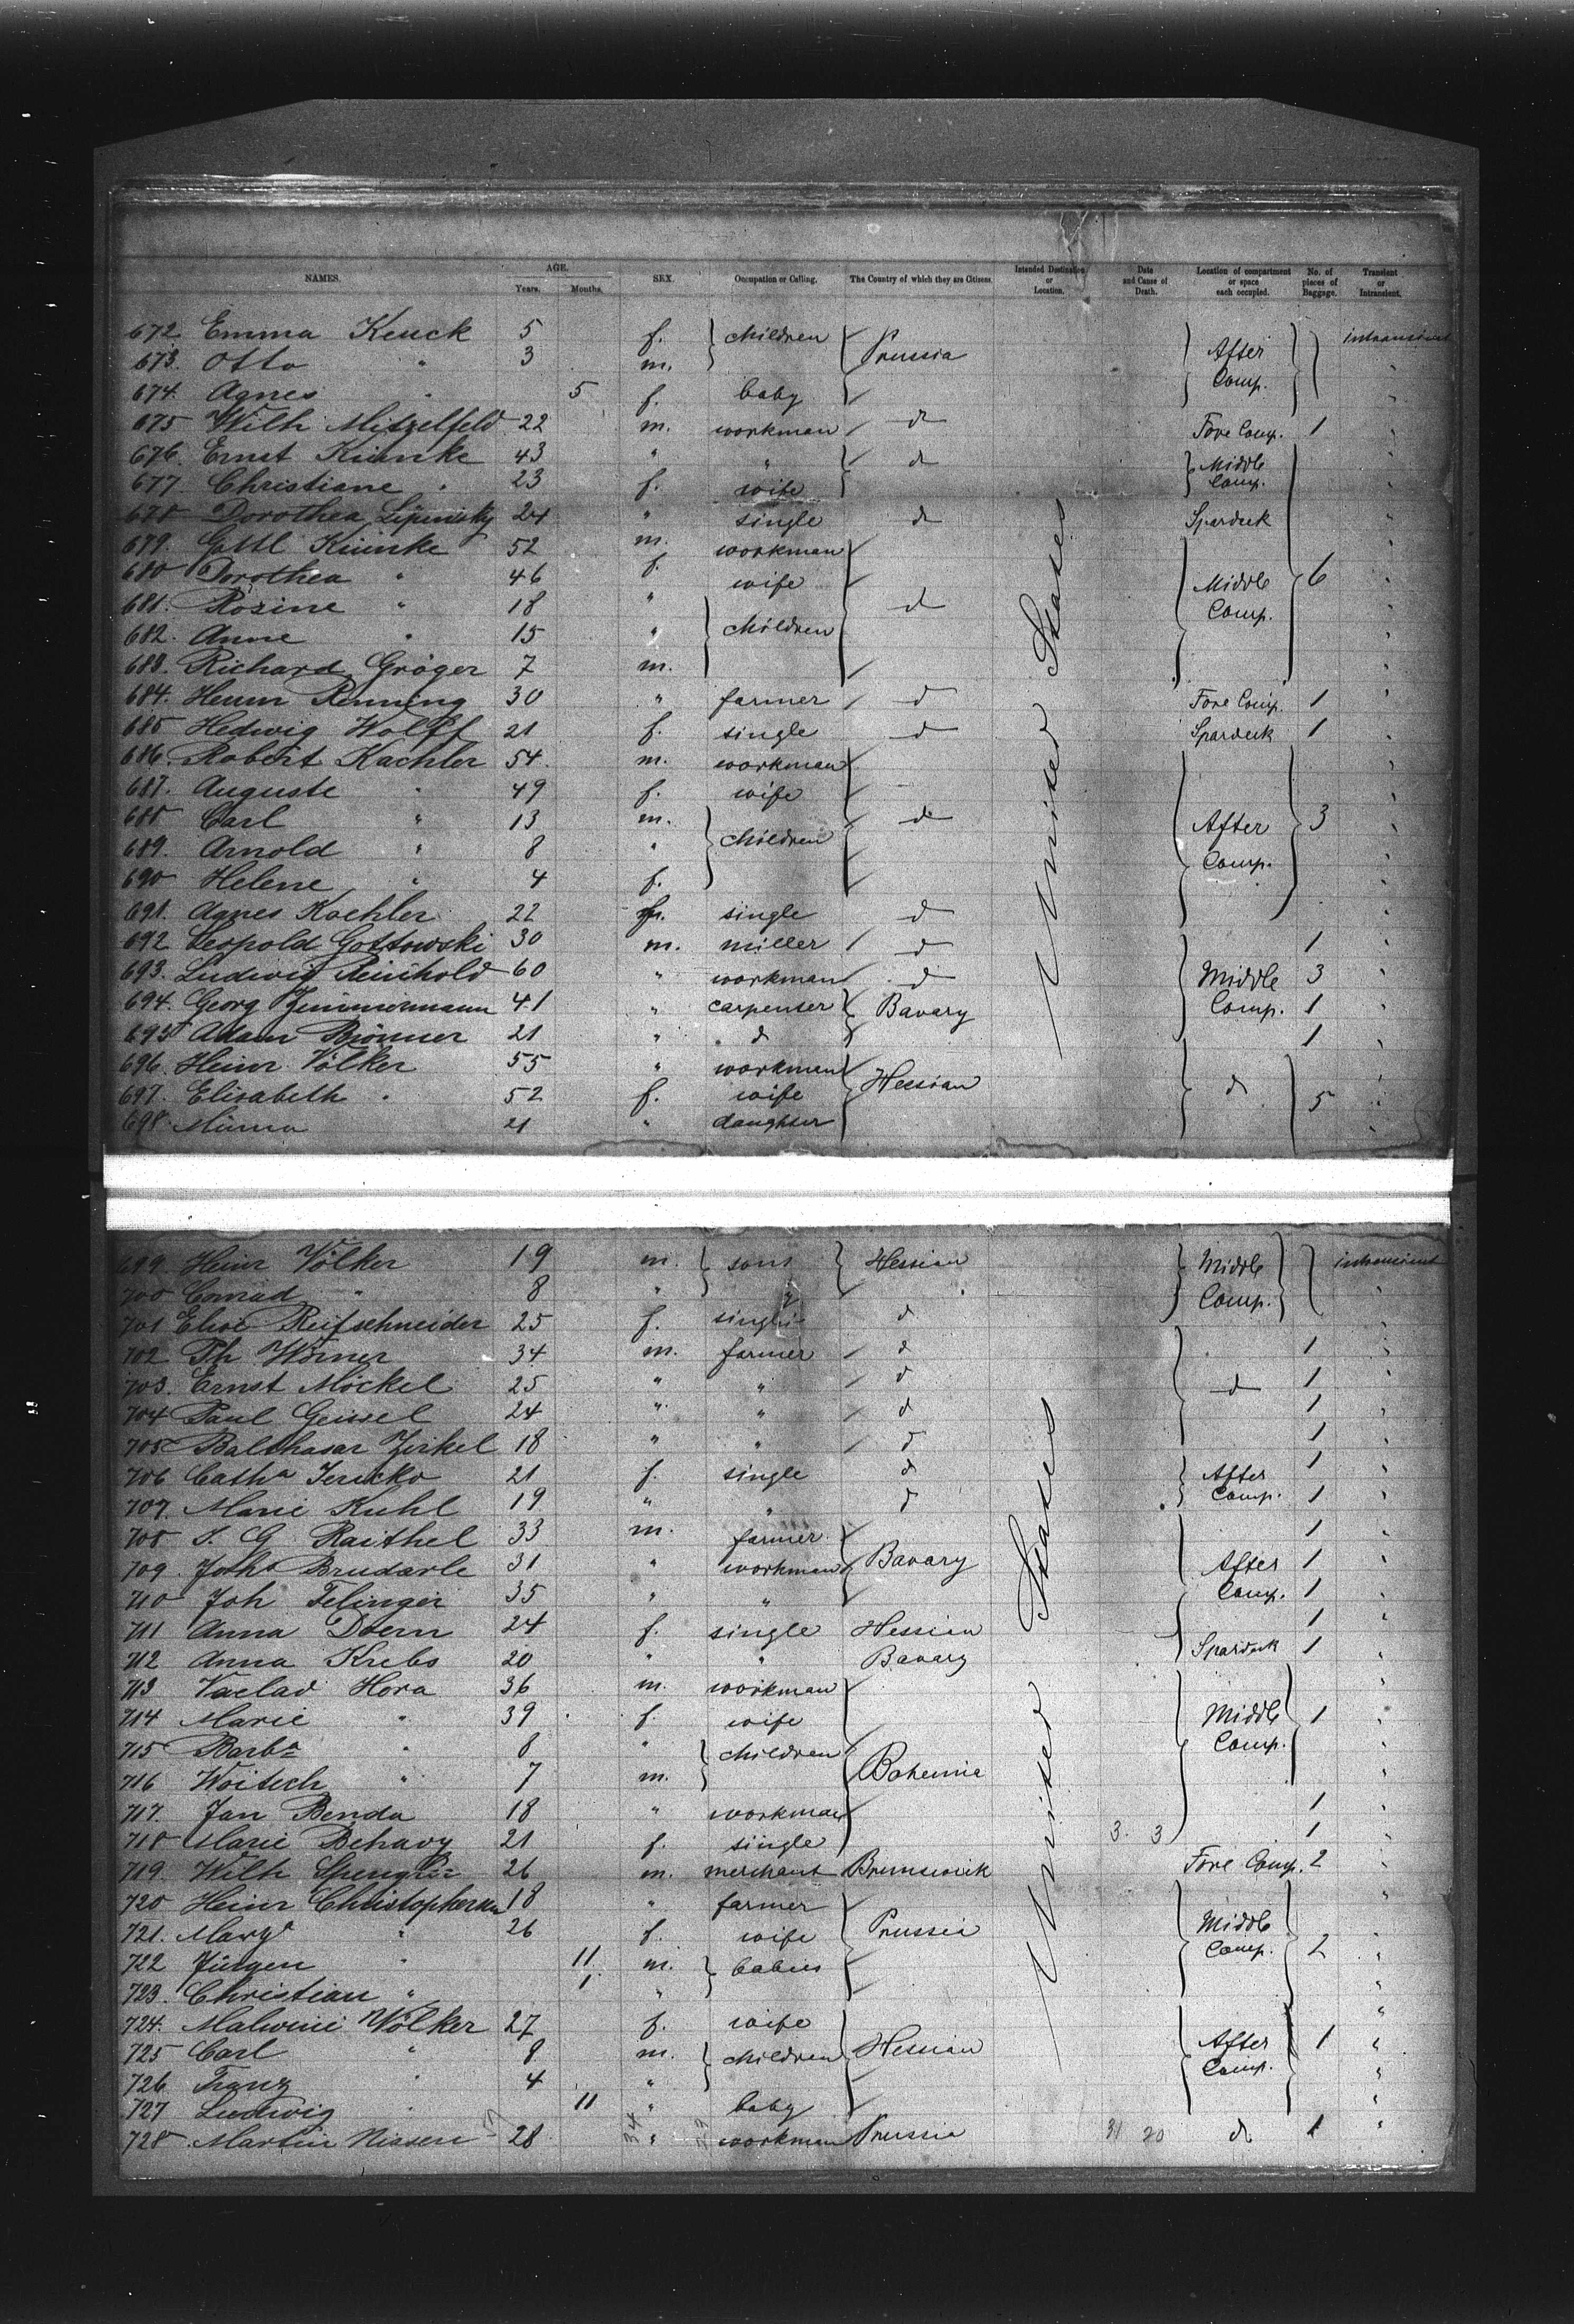 NAMES. AGE. Years. Months. SEX. Occupation or Calling. The Country of which they are Citizens. Intended Destination or Location. Date and Cause of Death. Location of compartment or space each occupied. No. of pieces of Baggage. Transient or Intransient.
672. Emma Keuck 5 f. children Prussia After Comp. intransient
673. Otto " 3 m. "
674. Agnes " 5 f. baby "
675 Wilh Mitzelfeld 22 m. workman d Fore Comp. 1 "
676. Ernst Künke 43 " " d Middle Comp. "
677 Christiane " 23 f. wife "
678 Dorothea Lipinsky 24 " single d Spardeck "
679. Gottl Künke 52 m. workman "
680 Dorothea " 46 f. wife d Middle Comp. 6 "
681. Rosine " 18 " children "
682. Anne " 15 " "
683. Richard Gröger 7 m. "
684. Herm Renning 30 " farmer d Fore Comp. 1 "
685 Hedwig Wolff 21 f. single d Spardeck 1 "
686. Robert Kaehler 54 m. workman "
687. Auguste " 49 f. wife "
688 Carl " 13 m. children d After Comp. 3 "
689. Arnold " 8 " "
690 Helene " 4 f. "
691. Agnes Koehler 22 f. single d "
692 Leopold Gottowski 30 m. miller d 1 "
693. Ludwig Reinhold 60 " workman d Middle Comp. 3 "
694. Georg Zimmermann 41 " carpenter Bavary 1 "
695 Adam Brönner 21 " d 1 "
696. Heinr Völker 55 " workman Hessian d 5 "
697. Elisabeth " 52 f. wife "
698. Minna 21 " daughter "
United States
699 Heinr Völker 19 m. sons Hessian Middle Comp. intransient
700 Conrad " 8 " "
701 Elise Reifschneider 25 f. single d "
702 Ph Wörner 34 m. farmer d 1 "
703. Ernst Möckel 25 " " d d 1 "
704 Paul Geissel 24 " " d 1 "
705 Balthasar Zirkel 18 " " d 1 "
706 Catha Jericko 21 f. single d After Comp. 1 "
707. Marie Kuhl 19 " " d 1 "
708 J. G. Raithel 33 m. farmer Bavary 1 "
709. Joh Brudarle 31 " workman After Comp. 1 "
710 Joh Felinger 35 " " 1 "
711 Anna Dtern 24 f. single Hessian 1 "
712 Anna Krebs 20 " " Bavary Spardeck 1 "
713 Vaclav Hora 36 m. workman Bohemia Middle Comp. 1 "
714 Marie " 39 f. wife "
715 Barba " 8 " children "
716 Woitech " 7 m. "
717. Jan Benda 18 " workman 1 "
718 Marie Behavy 21 f. single 3. 3 1 "
719. Wilh 26 m. merchant Brunswick Fore Comp. 2 "
720 Heinr Christophersen 18 " farmer Prussia Middle Comp. 2 "
721. Mary " 26 f. wife
722 Jürgen " 11 m. babies "
723. Christian " 1 " "
724. Malwine Völker 27 f. wife Hessian After Comp. 1 "
725 Carl " 8 m. children "
726. Franz " 4 " "
727 Ludwig " 11 " baby "
728 Martin Nissen 28 " workman Prussia 31 20 d 1 "
United States